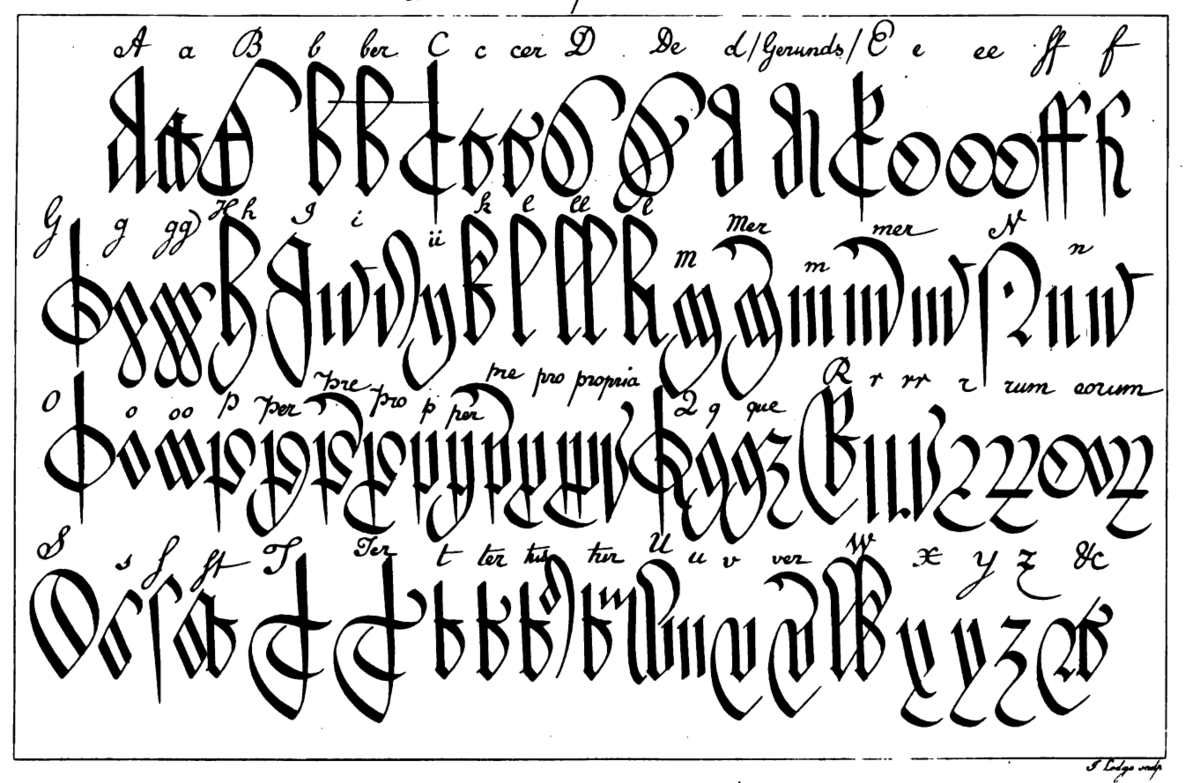 A a B b ber C c cer D De d/Gerunds/E e ee ff f
G g gg H h I i ii k l ll l m Mer m mer N n
O o oo p per pre pro p per pre pro propria Q q que R r rr r rum eorum
S s ſ ſt T Ter t ter tus tur U u v ver W x y z &c